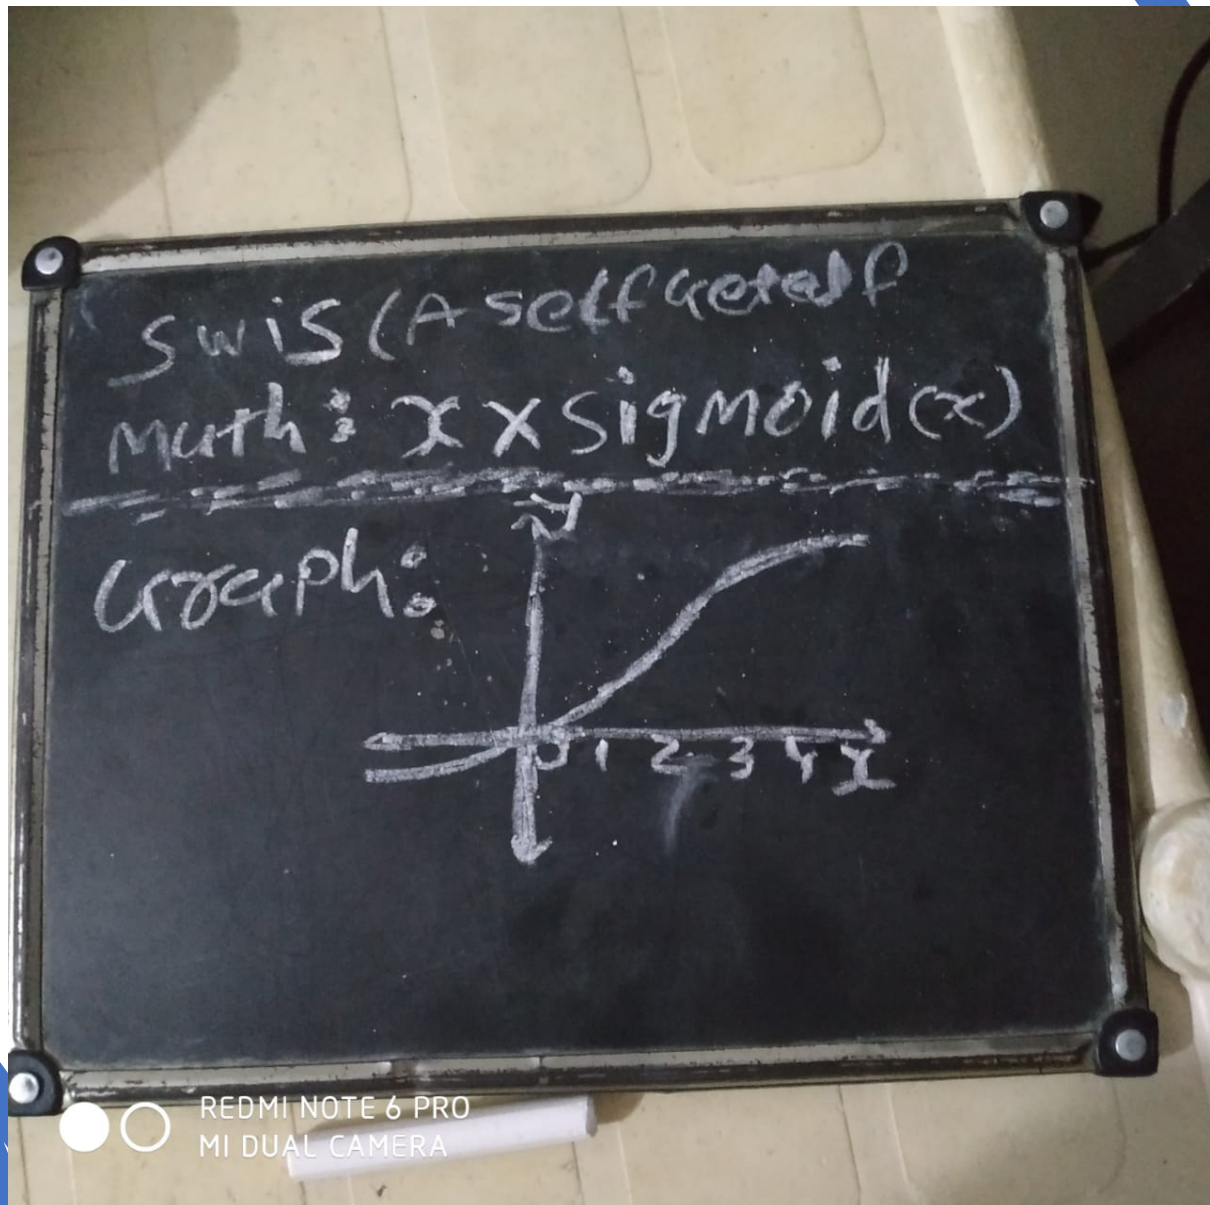 SWiS (A self Gated f
Math: x × Sigmoid (x)
Graph:
y
0 1 2 3 4 x
REDMI NOTE 6 PRO
MI DUAL CAMERA